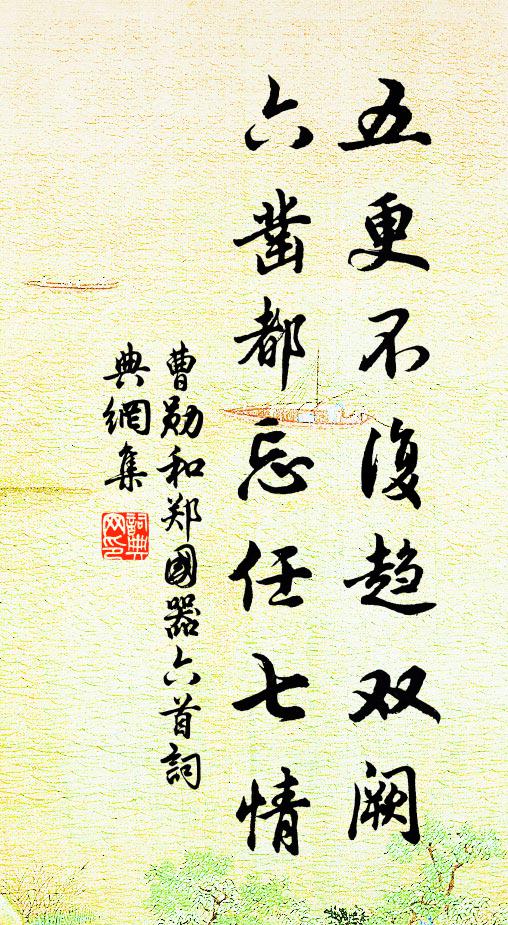 五更不复趋双阙
六凿都忘任七情
曹勋和郑國器六首詞
典網集
詞典
网印